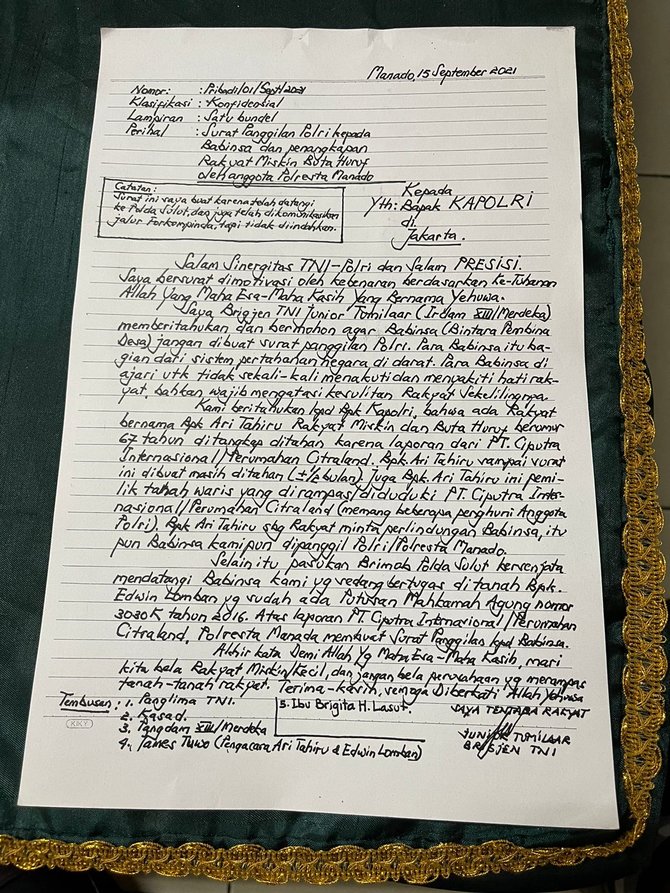 Manado, 15 September 2021
Nomor: : Pribadi/01/Sept/2021
Klasifikasi : Konfidensial
Lampiran : Satu bundel
Perihal : Surat Panggilan Polri kepada
Babinsa dan penangkapan
Rakyat Miskin Buta Huruf
oleh anggota Polresta Manado
Catatan:
Surat ini saya buat karena telah datangi
ke Polda Sulut, dan juga telah dikomunikasikan
jalur Forkompinda, tapi tidak diindahkan.
Kepada
Yth: Bapak KAPOLRI
di
Jakarta.
Salam Sinergitas TNI-Polri dan Salam PRESISI.
Saya bersurat dimotivasi oleh kebenaran berdasarkan ke-Tuhanan
Allah Yang Maha Esa-Maha Kasih Yang Bernama Yehuwa.
Saya Brigjen TNI Junior Tumilaar (Irdam XIII/Merdeka)
memberitahukan dan bermohon agar Babinsa (Bintara Pembina
Desa) jangan dibuat surat panggilan Polri. Para Babinsa itu ba-
gian dari sistem pertahanan negara di darat. Para Babinsa di
ajari utk tidak sekali-kali menakuti dan menyakiti hati rak-
yat, bahkan wajib mengatasi kesulitan Rakyat Sekelilingnya.
Kami beritahukan kpd Bpk Kapolri, bahwa ada Rakyat
bernama Bpk Ari Tahiru Rakyat Miskin dan Buta Huruf berumur
67 tahun ditangkap ditahan karena laporan dari PT. Ciputra
Internasional/Perumahan Citraland. Bpk. Ari Tahiru sampai surat
ini dibuat masih ditahan (±½ bulan). Juga Bpk. Ari Tahiru ini pemi-
lik tanah waris yang dirampas/diduduki PT. Ciputra Inter-
nasional/Perumahan Citraland (memang beberapa penghuni Anggota
Polri). Bpk Ari Tahiru sbg Rakyat minta perlindungan Babinsa, itu
pun Babinsa kamipun dipanggil Polri/Polresta Manado.
Selain itu, pasukan Brimob Polda Sulut bersenjata
mendatangi Babinsa kami yg sedang bertugas di tanah Bpk.
Edwin Lomban yg sudah ada Putusan Mahkamah Agung nomor
3030K tahun 2016. Atas laporan PT. Ciputra Internasional/Perumahan
Citraland, Polresta Manado membuat Surat Panggilan kpd Babinsa.
Akhir kata Demi Allah Yg Maha Esa-Maha Kasih, mari
kita bela Rakyat Miskin/Kecil, dan jangan bela perusahaan yg merampas
tanah-tanah rakyat. Terima-kasih, semoga Diberkati Allah Yehuwa
Tembusan : 1. Panglima TNI.
2. Kasad.
3. Pangdam XIII/Merdeka
4. James Tuwo (Pengacara Ari Tahiru & Edwin Lomban)
5. Ibu Brigita H. Lasut.
SAYA TENTARA RAKYAT
JUNIOR TUMILAAR
BRIGJEN TNI
KIKY